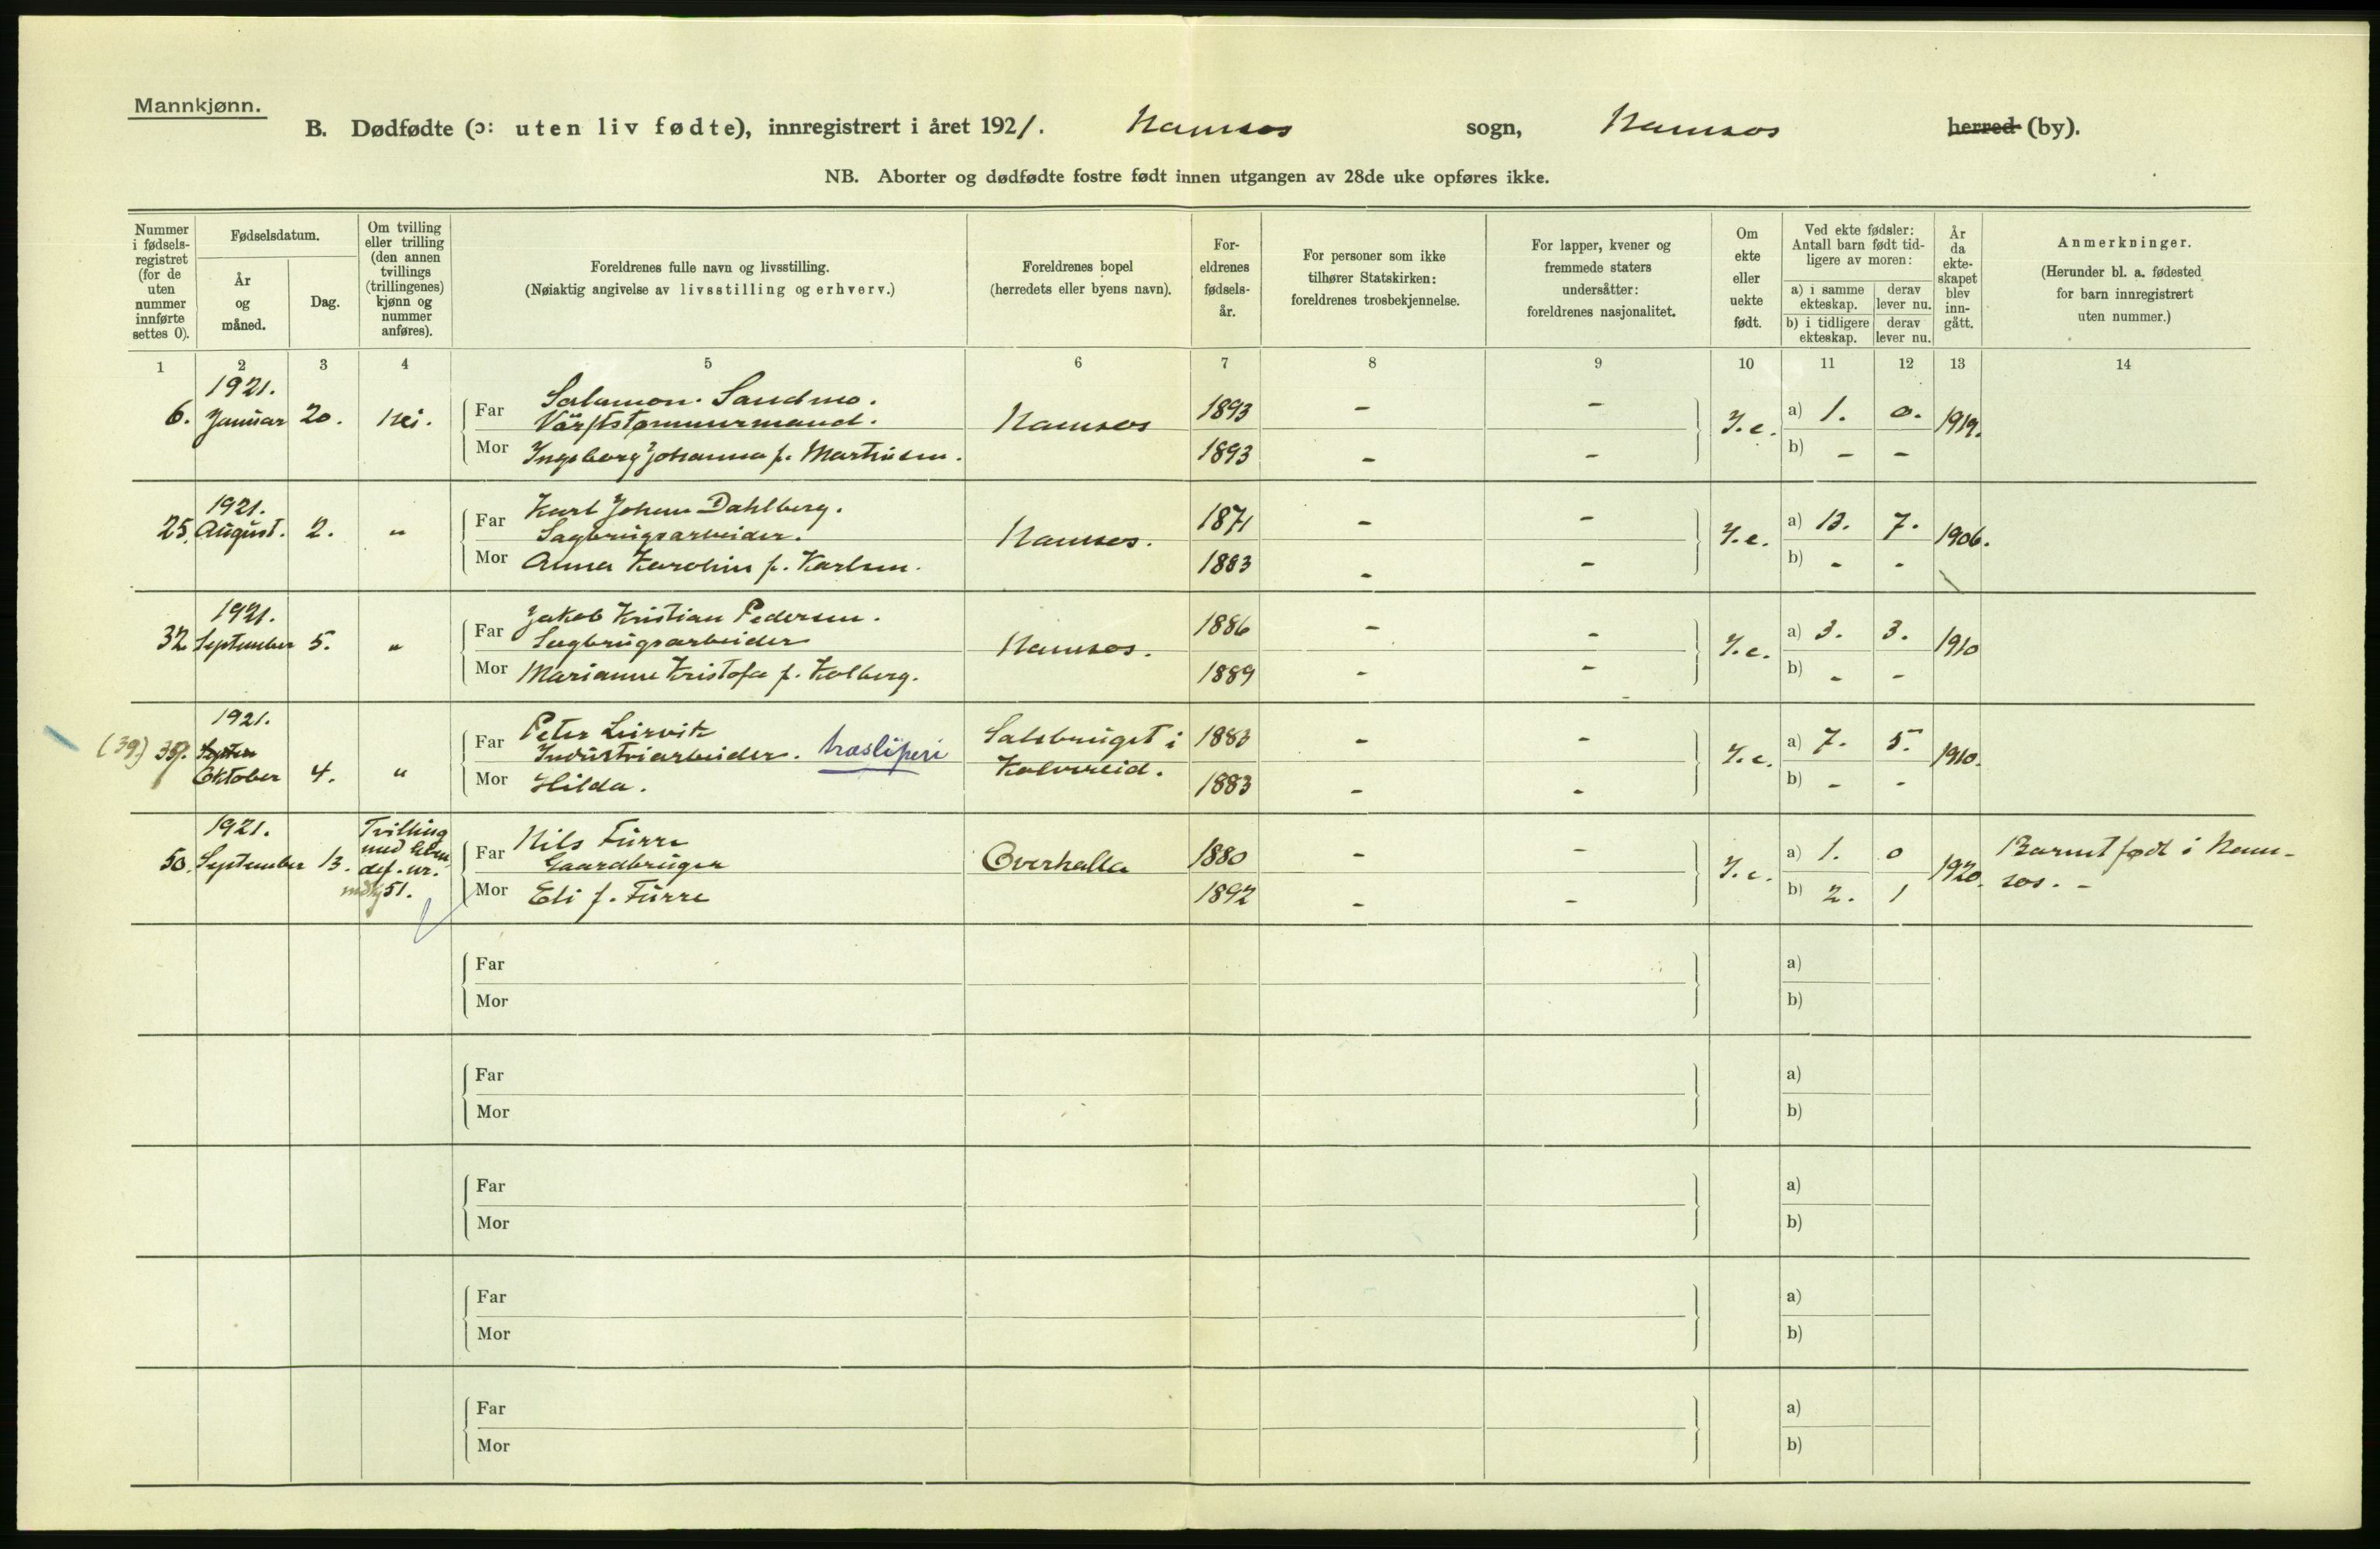 Mannkjønn.
B. Dødfødte (ɔ: uten liv fødte), innregistrert i året 1921. Namsos sogn, Namsos herred (by).
NB. Aborter og dødfødte fostre født innen utgangen av 28de uke opføres ikke.
Nummer i fødsels-registret (for de uten nummer innførte settes 0).
Fødselsdatum.
År og måned.
Dag.
Om tvilling eller trilling (den annen tvillings (trillingenes) kjønn og nummer anføres).
Foreldrenes fulle navn og livsstilling.
(Nøiaktig angivelse av livsstilling og erhverv.)
Foreldrenes bopel
(herredets eller byens navn).
For-eldrenes fødsels-år.
For personer som ikke tilhører Statskirken: foreldrenes trosbekjennelse.
For lapper, kvener og fremmede staters undersåtter: foreldrenes nasjonalitet.
Om ekte eller uekte født.
Ved ekte fødsler: Antall barn født tid-ligere av moren:
a) i samme ekteskap.
derav lever nu.
b) i tidligere ekteskap.
derav lever nu.
År da ekte-skapet blev inn-gått.
Anmerkninger.
(Herunder bl. a. fødested for barn innregistrert uten nummer.)
1 2 3 4 5 6 7 8 9 10 11 12 13 14
1921.
6. Januar 20. Nei.
Far Salamon Sandmo.
Värftstømmermand.
Mor Ingeborg Johanna f. Martinsen.
Namsos
1893 - -
1893 - -
I.e.
a) 1. 0.
b) - -
1919.
1921.
25. August. 2. "
Far Karl Johan Dahlberg.
Sagbrugsarbeider.
Mor Anna Karolina f. Karlsen.
Namsos.
1871 - -
1883 - -
I.e.
a) 13. 7.
b) - -
1906.
1921.
32 September 5. "
Far Jakob Kristian Pedersen.
Sagbrugsarbeider
Mor Marianne Kristofa f. Kolberg.
Namsos.
1886 - -
1889 - -
I.e.
a) 3. 3.
b) - -
1910
1921.
(39) Septem
Oktober 4. "
Far Peter Leirvik
Industriarbeider. træsliperi
Mor Hilda.
Salsbruget i
Kolvereid.
1883 - -
1883 - -
I.e.
a) 7. 5.
b) - -
1910.
1921.
50. September 13.
Tvilling
med
def. nr.
51.
Far Nils Furre
Gaardbruger
Mor Eli f. Furre
Overhalla
1880 - -
1892 - -
I.e.
a) 1. 0
b) 2. 1
1920.
Barnet født i Nam-
sos. -
Far
Mor
a)
b)
Far
Mor
a)
b)
Far
Mor
a)
b)
Far
Mor
a)
b)
Far
Mor
a)
b)